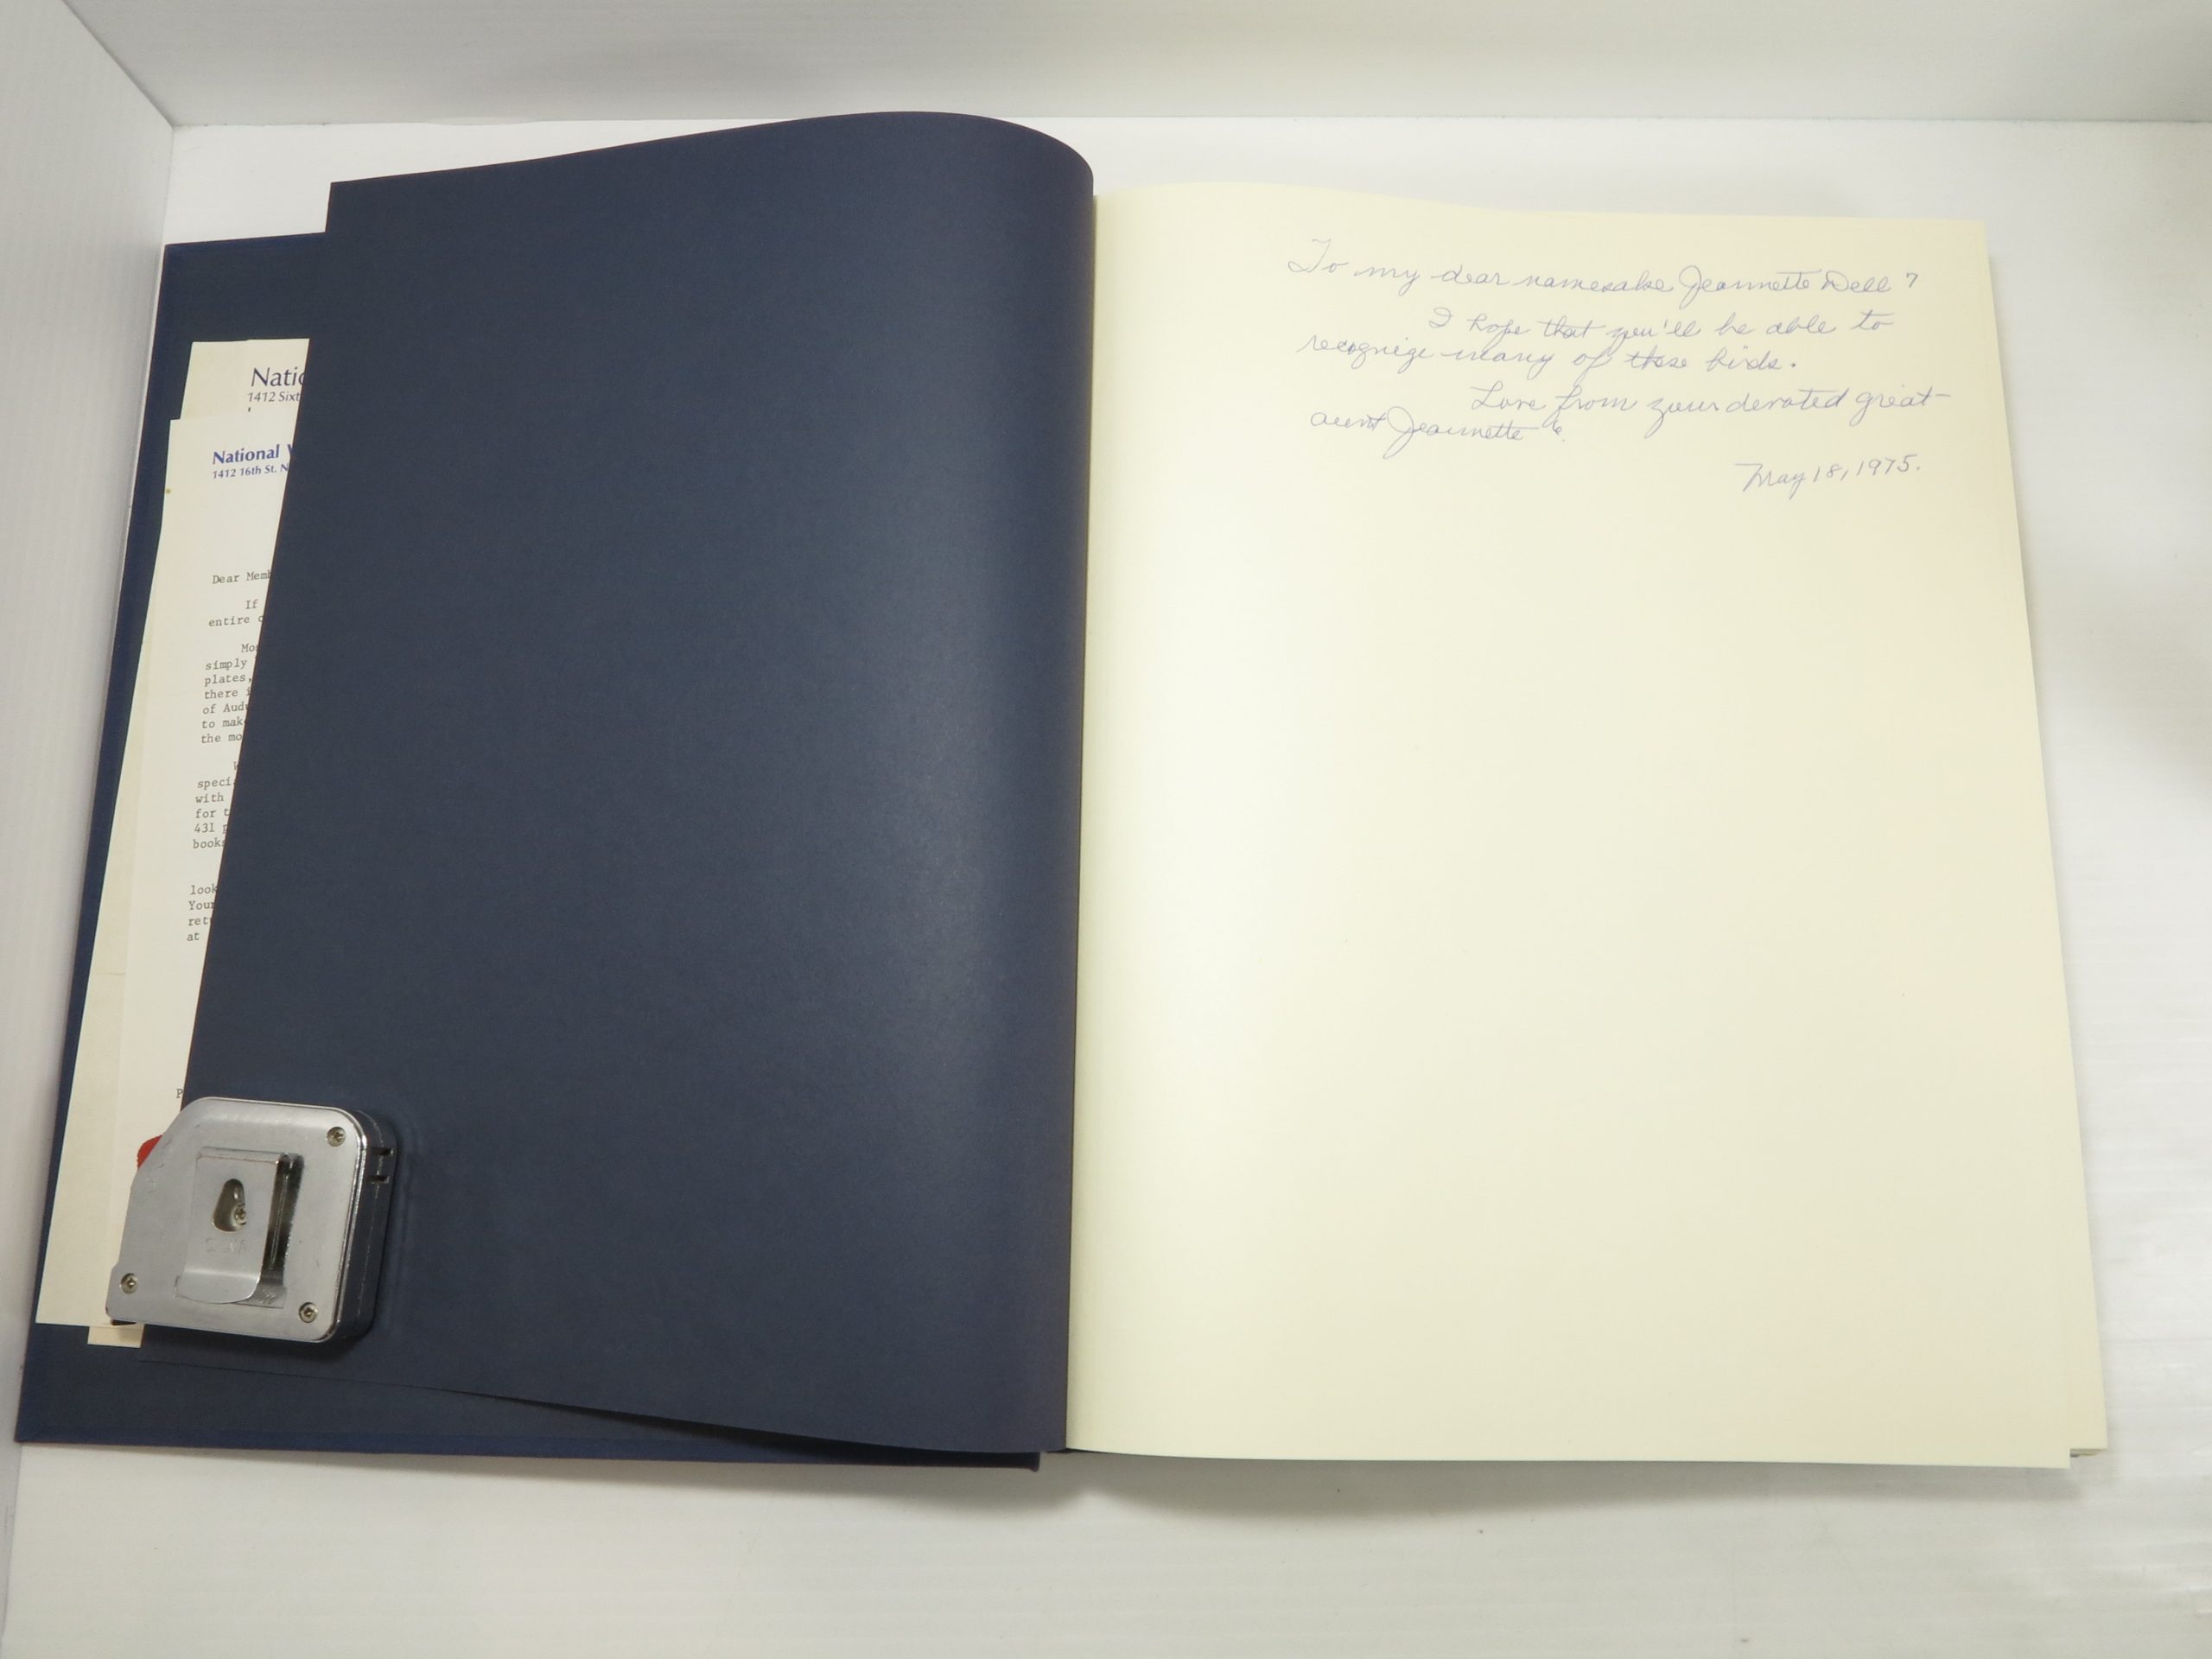 Natio
1412 Sixt
National W
1412 16th St. N
Dear Memb
If
entire c
Mos
simply
plates,
there i
of Audu
to make
the mo
W
speci
with
for t
431 p
books
look
Your
retu
at
P
To my dear namesake Jeannette Dell
I hope that you'll be able to
recognize many of these birds.
Love from your devoted great-
aunt Jeannette
May 18, 1975.